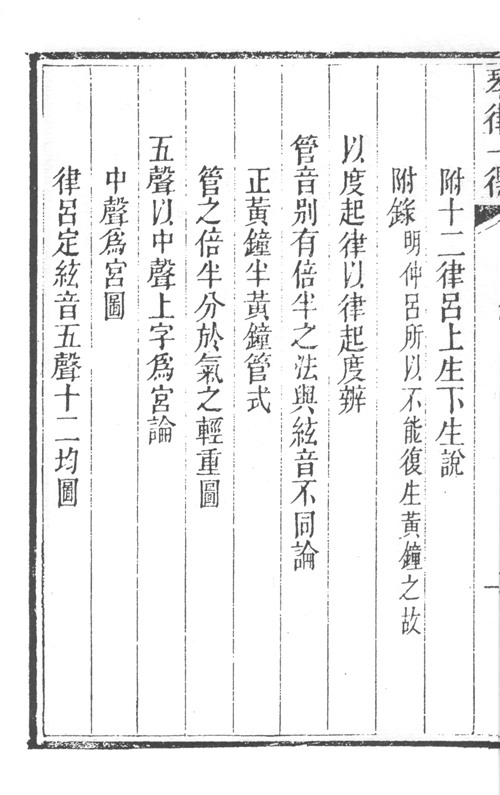 琴律一得
附十二律呂上生下生說
附錄明仲呂所以不能復生黃鐘之故
以度起律以律起度辨
管音别有倍半之法與絃音不同論
正黃鐘半黃鐘管式
管之倍半分於氣之輕重圖
五聲以中聲上字爲宮論
中聲爲宮圖
律呂定絃音五聲十二均圖